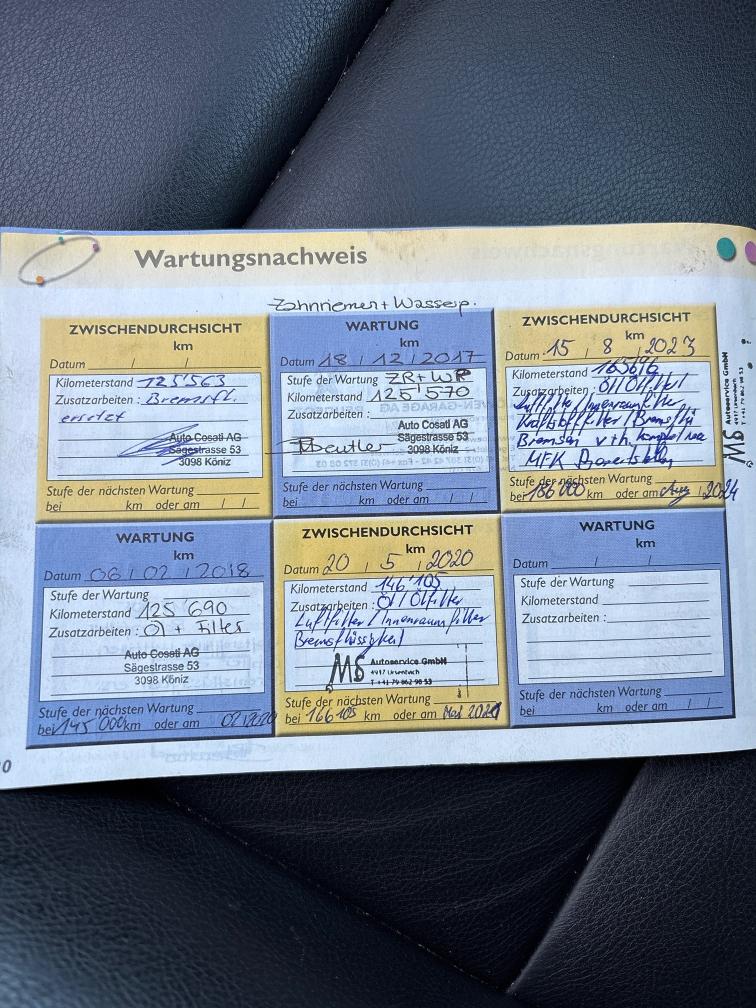 Wartungsnachweis
Zahnriemen + Wasserp.
ZWISCHENDURCHSICHT
km
Datum / /
Kilometerstand 125'563
Zusatzarbeiten : Bremsfl.
ersetzt
Auto Cosati AG
Sägestrasse 53
3098 Köniz
Stufe der nächsten Wartung
bei km oder am / /
WARTUNG
km
Datum 18 / 12 / 2017
Stufe der Wartung ZR + WP
Kilometerstand 125'570
Zusatzarbeiten :
Auto Cosati AG
Sägestrasse 53
Beutler 3098 Köniz
Stufe der nächsten Wartung
bei km oder am / /
ZWISCHENDURCHSICHT
km
Datum 15 / 8 / 2023
Kilometerstand 165616
Zusatzarbeiten : Öl/Ölfilter/
Luftfilter/Innenraumfilter
Kraftstofffilter/Bremsflü
Bremsen v+h
MFK Bereitstellen
Stufe der nächsten Wartung
bei 186 000 km oder am Aug / 2024
MS Autoservice GmbH
WARTUNG
km
Datum 06 / 02 / 2018
Stufe der Wartung
Kilometerstand 125 690
Zusatzarbeiten : Öl + Filter
Auto Cosati AG
Sägestrasse 53
3098 Köniz
Stufe der nächsten Wartung
bei 145 000 km oder am 02/2020
ZWISCHENDURCHSICHT
km
Datum 20 / 5 / 2020
Kilometerstand 146'105
Zusatzarbeiten : Öl/Ölfilter
Luftfilter/Innenraumfilter
Bremsflüssigkeit
MS Autoservice GmbH
4937 Ursenbach
T +41 79 862 98 53
Stufe der nächsten Wartung
bei 166 105 km oder am Mai 2021
WARTUNG
km
Datum / /
Stufe der Wartung
Kilometerstand
Zusatzarbeiten :
Stufe der nächsten Wartung
bei km oder am / /
0